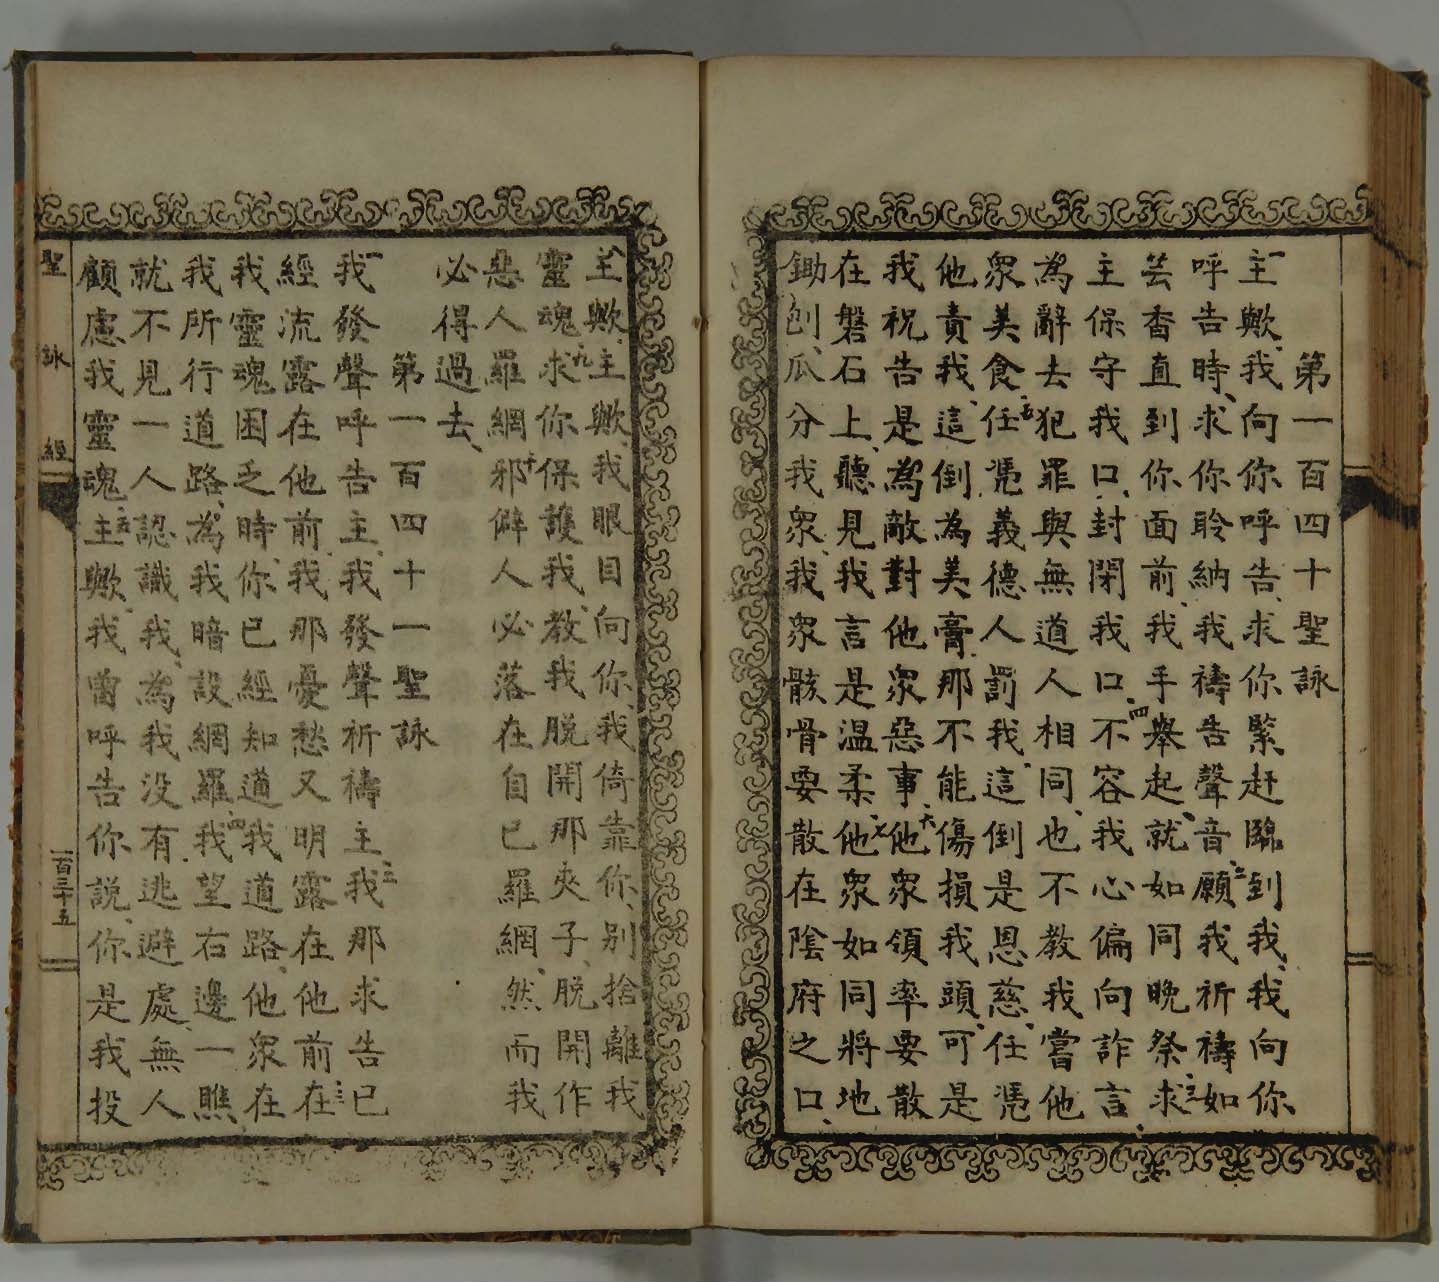 第一百四十聖詠
一主歟、我向你呼告、求你緊赶臨到我、我向你
呼告時、求你聆納我禱告聲音、二願我祈禱如
芸香直到你面前、我手舉起、就如同晩祭、三求
主保守我口、封閉我口、四不容我心偏向詐言、
為辭去犯罪、與無道人相同、也不教我嘗他
衆美食、五任憑義德人罰我、這倒是恩慈、任憑
他責我、這倒為美膏、那不能傷損我頭、可是
我祝告是為敵對他衆惡事、六他衆領率要散
在磐石上、聽見我言是温柔、七他衆如同將地
鋤刨、瓜分我衆、我衆骸骨要散在陰府之口、
八主歟、主歟、我眼目向你、我倚靠你、别捨離我
靈魂、九求你保護我、教我脱開那夾子、脱開作
惡人羅網、十邪僻人必落在自已羅網、然而我
必得過去、
第一百四十一聖詠
一我發聲呼告主、我發聲祈禱主、二我那求告已
經流露在他前、我那憂愁又明露在他前、三在
我靈魂困乏時、你已經知道我道路、他衆在
我所行道路、為我暗設網羅、四我望右邊一瞧、
就不見一人認識我、為我没有逃避處、無人
顧慮我靈魂、五主歟、我曾呼告你説、你是我投
聖詠經
一百三十五